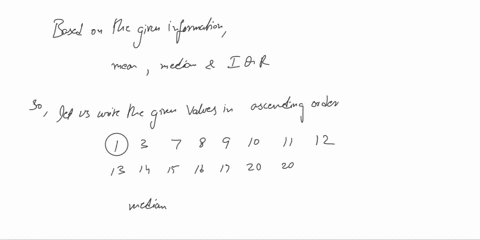 Based on the given information,
mean, median & IQR
So, let us write the given values in ascending order
1 3 7 8 9 10 11 12
13 14 15 16 17 20 20
median